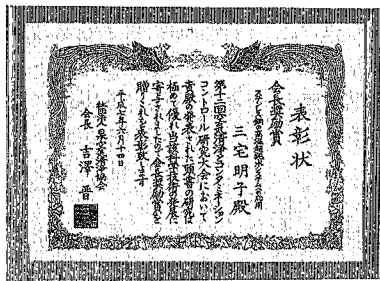 表彰状
会長奨励賞
三宅明子殿
第十三回空気清浄とコンタミネーション
コントロール研究大会において
貴殿の発表された頭書の研究は
極めて優れ当該科学技術の発展に
寄与されましたので会長奨励賞を
贈りこれを表彰致します
平成七年六月十四日
社団法人日本空気清浄協会
会長 吉澤晋